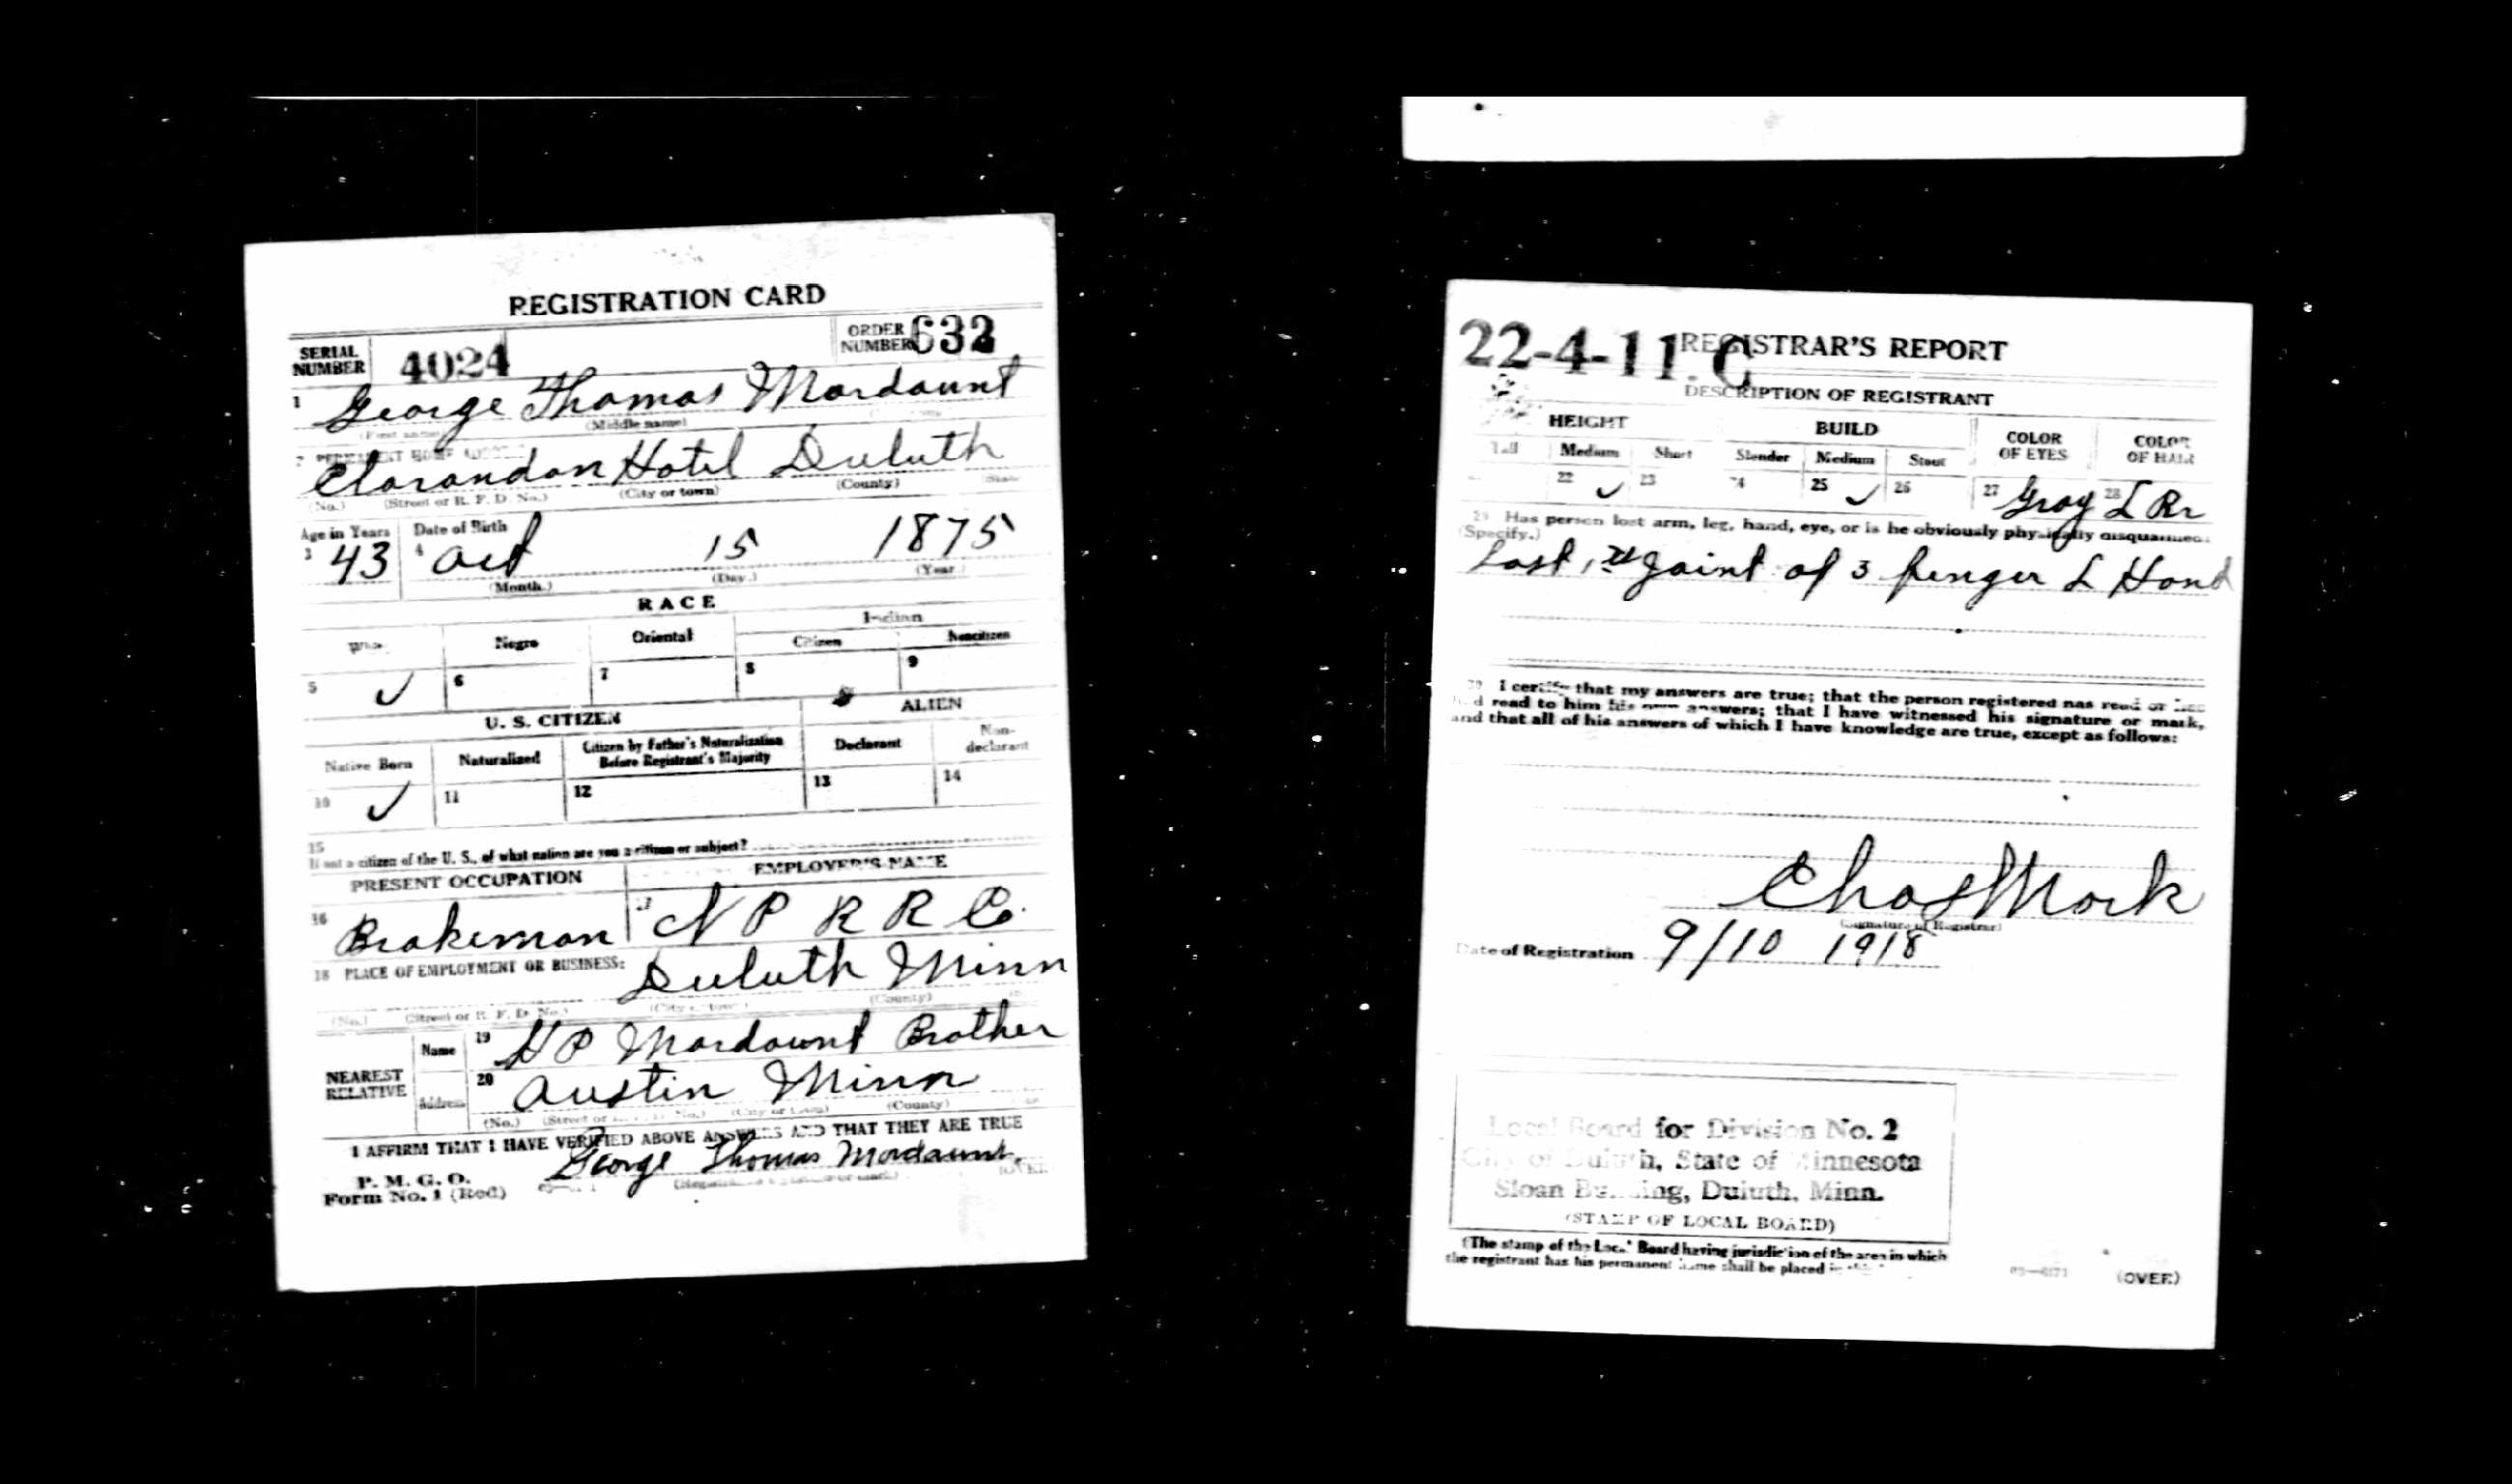 REGISTRATION CARD
SERIAL NUMBER 4024 ORDER NUMBER 632
1 George Thomas Mordaunt
(First name) (Middle name)
2 PERMANENT HOME ADDRESS
Clarandon Hotel Duluth
(No.) (Street or R. F. D. No.) (City or town) (County) (State)
Age in Years Date of Birth
3 43 4 Oct 15 1875
(Month.) (Day.) (Year.)
RACE
White Negro Oriental Indian
Citizen Noncitizen
5 ✓ 6 7 8 9
U. S. CITIZEN ALIEN
Native Born Naturalized Citizen by Father's Naturalization Before Registrant's Majority Declarant Non-declarant
10 ✓ 11 12 13 14
15
If not a citizen of the U. S., of what nation are you a citizen or subject?
PRESENT OCCUPATION EMPLOYER'S NAME
16 Brakeman 17 N P R R Co.
18 PLACE OF EMPLOYMENT OR BUSINESS:
Duluth Minn
(No.) (Street or R. F. D. No.) (City or town) (County)
NEAREST RELATIVE
Name 19 Mordaunt Brother
Address 20 Austin Minn
(No.) (Street or R. F. D. No.) (City or town) (County)
I AFFIRM THAT I HAVE VERIFIED ABOVE ANSWERS AND THAT THEY ARE TRUE
P. M. G. O.
Form No. 1 (Red) George Thomas Mordaunt.
(Registrant's signature or mark) (OVER)
22-4-11. C REGISTRAR'S REPORT
DESCRIPTION OF REGISTRANT
HEIGHT BUILD COLOR OF EYES COLOR OF HAIR
Tall Medium Short Slender Medium Stout
22 ✓ 23 24 25 ✓ 26 27 Gray 28 L Br
29 Has person lost arm, leg, hand, eye, or is he obviously physically disqualified?
(Specify.)
Lost 1st Joint of 3 finger L Hand
30 I certify that my answers are true; that the person registered has read or has
had read to him his own answers; that I have witnessed his signature or mark,
and that all of his answers of which I have knowledge are true, except as follows:
Chas Mork
(Signature of Registrar)
Date of Registration 9/10 1918
Local Board for Division No. 2
City of Duluth, State of Minnesota
Sloan Building, Duluth, Minn.
(STAMP OF LOCAL BOARD)
(The stamp of the Local Board having jurisdiction of the area in which
the registrant has his permanent home shall be placed in this
(OVER)